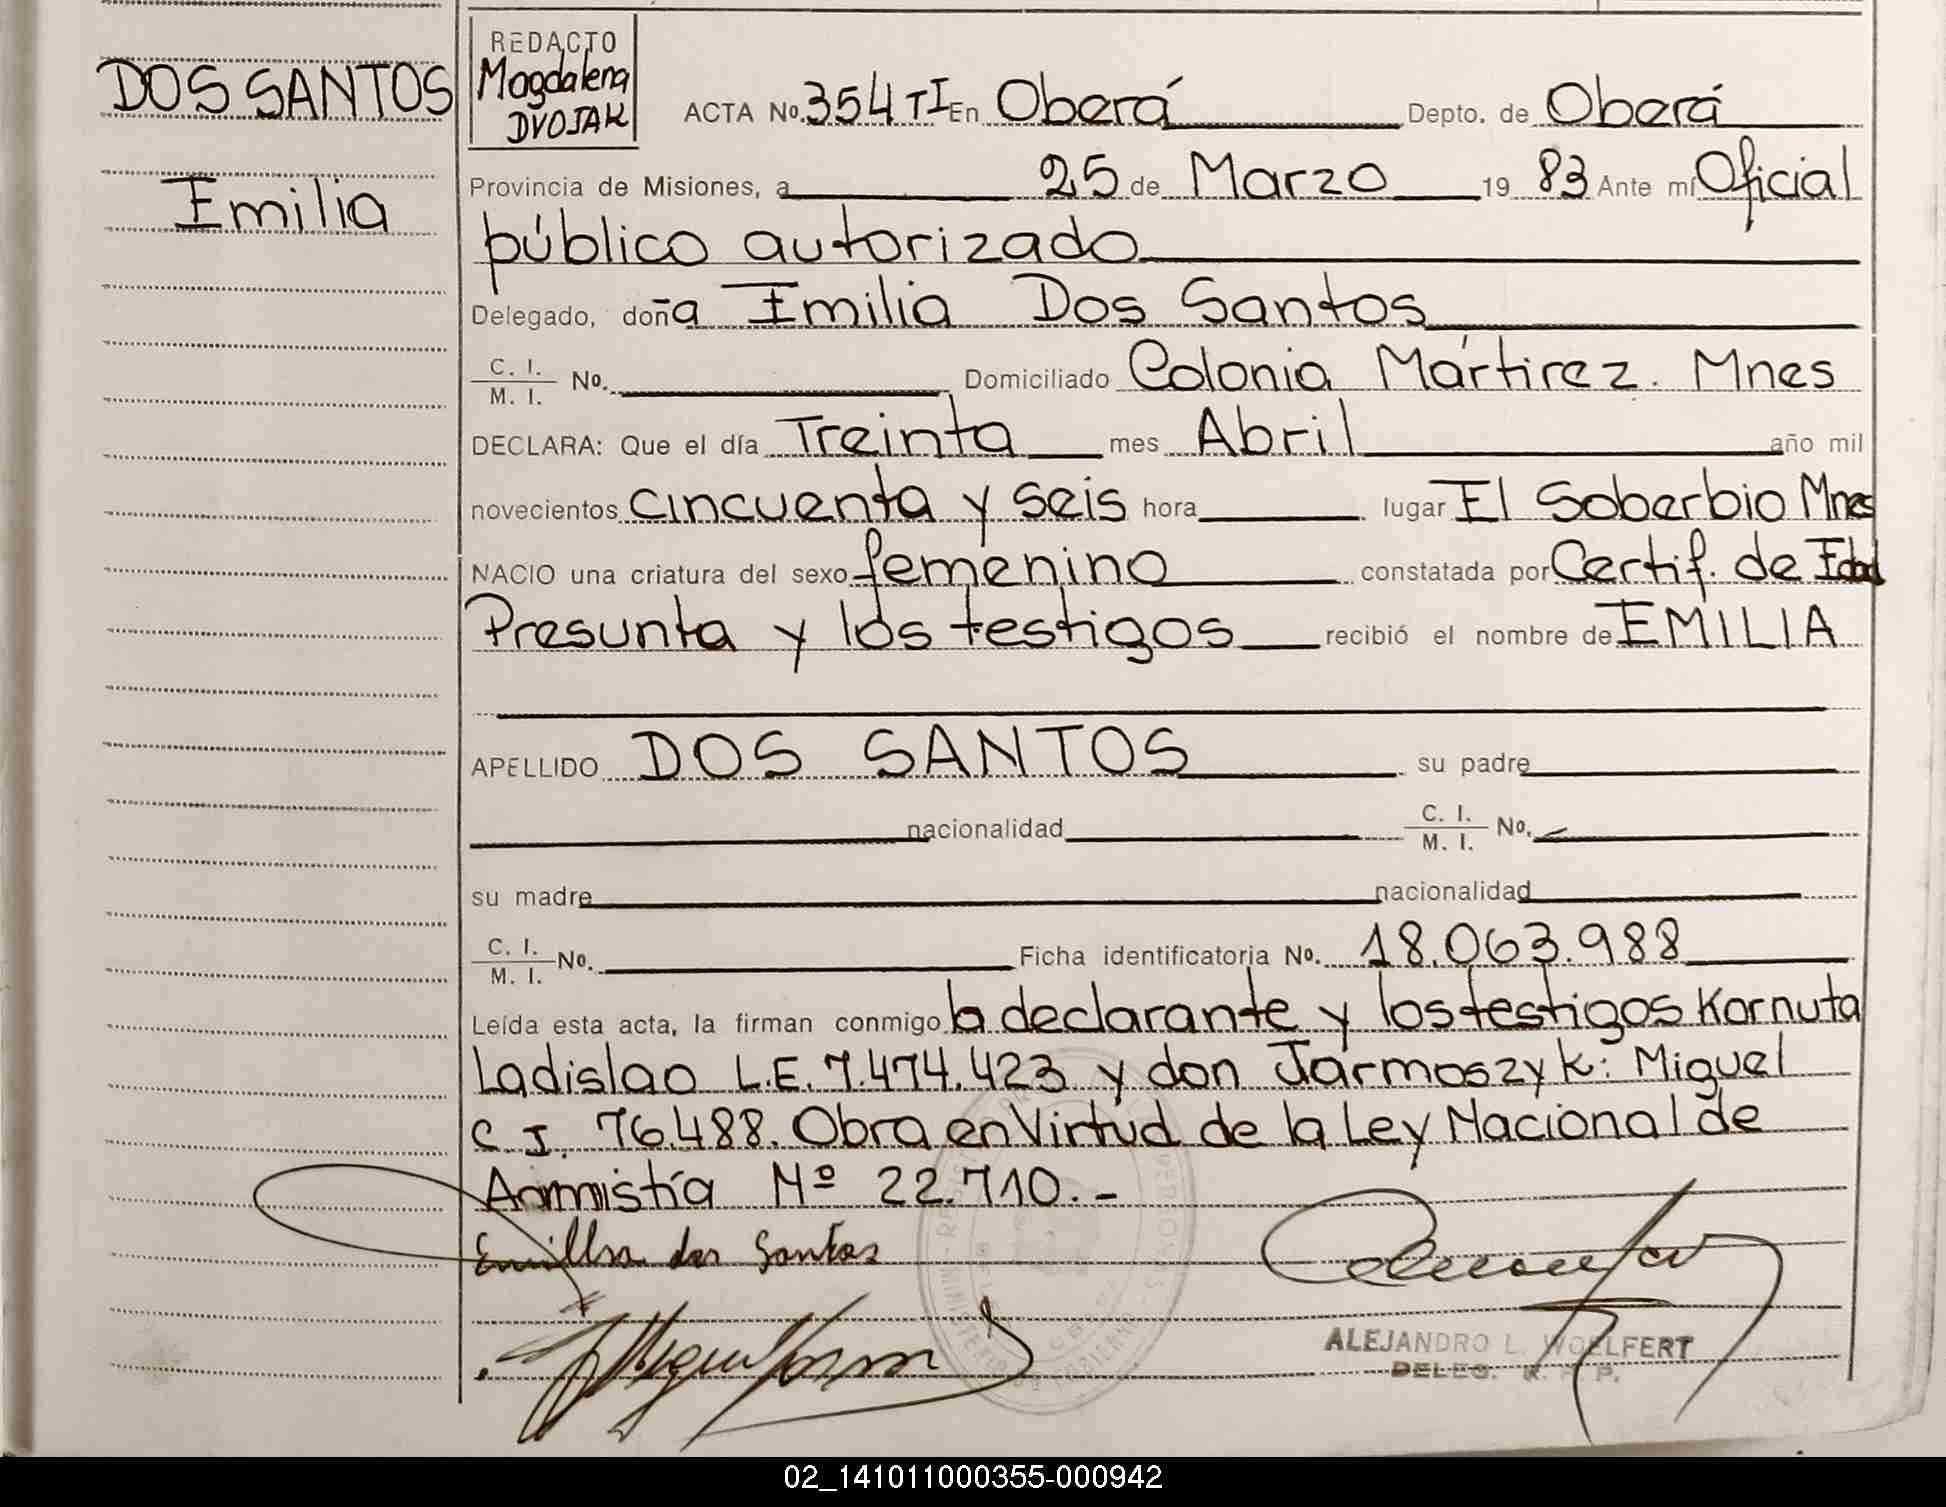 DOS SANTOS
Emilia
REDACTO
Magdalena
DVOJAK
ACTA No. 354 TI En Oberá Depto. de Oberá
Provincia de Misiones, a 25 de Marzo 19 83 Ante mí Oficial
público autorizado
Delegado, doña Emilia Dos Santos
C. I.
M. I. No. Domiciliado Colonia Mártirez. Mnes
DECLARA: Que el día Treinta mes Abril año mil
novecientos cincuenta y seis hora lugar El Soberbio Mnes
NACIO una criatura del sexo femenino constatada por Certif. de Edad
Presunta y los testigos recibió el nombre de EMILIA
APELLIDO DOS SANTOS su padre
nacionalidad C. I.
M. I. No.
su madre nacionalidad
C. I.
M. I. No. Ficha identificatoria No. 18.063.988
Leída esta acta, la firman conmigo la declarante y los testigos Kornuta
Ladislao L.E. 7.474.423 y don Jarmoszyk: Miguel
C.I. 76.488. Obra en Virtud de la Ley Nacional de
Ammistía Nº 22.710.-
Emilia dos Santos
ALEJANDRO L. WOELFERT
DELEG. R. P.
02_141011000355-000942